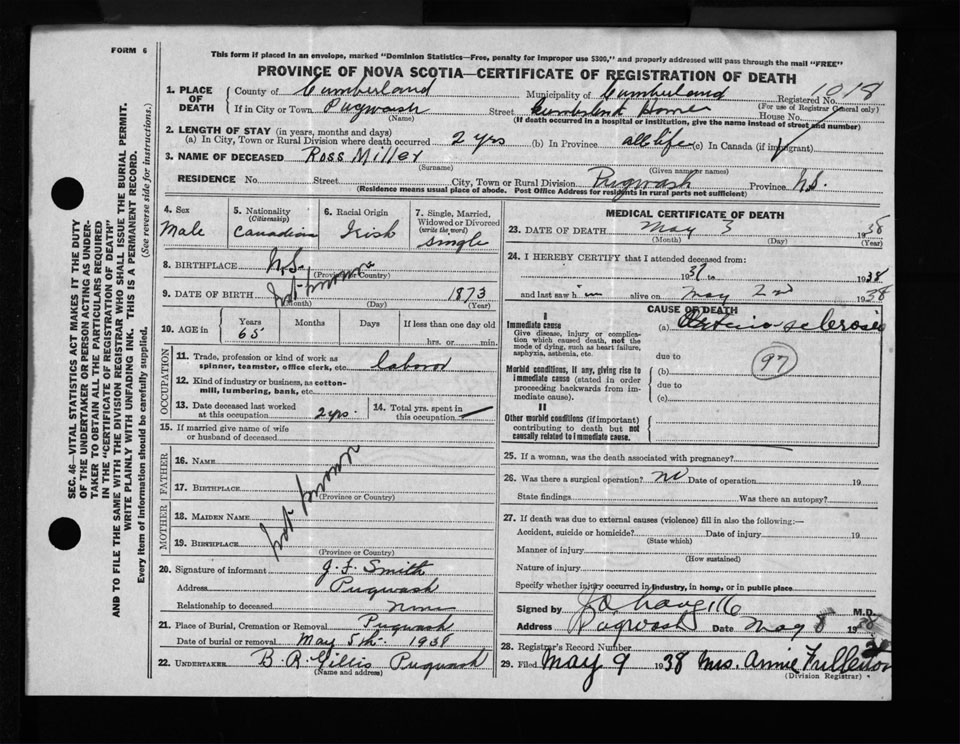 FORM 6
This form if placed in an envelope, marked "Dominion Statistics—Free, penalty for improper use $300," and properly addressed will pass through the mail "FREE"
PROVINCE OF NOVA SCOTIA—CERTIFICATE OF REGISTRATION OF DEATH
1. PLACE OF DEATH
County of Cumberland Municipality of Cumberland Registered No. 1018
(For use of Registrar General only)
If in City or Town Pugwash Street Home House No.
(Name) (If death occurred in a hospital or institution, give the name instead of street and number)
2. LENGTH OF STAY (in years, months and days)
(a) In City, Town or Rural Division where death occurred 2 yrs (b) In Province all life (c) In Canada (if immigrant)
3. NAME OF DECEASED Ross Miller
(Surname) (Given name or names)
RESIDENCE No. Street City, Town or Rural Division Pugwash Province N.S.
(Residence means usual place of abode. Post Office Address for residents in rural parts not sufficient)
4. Sex Male
5. Nationality (Citizenship) Canadian
6. Racial Origin Irish
7. Single, Married, Widowed or Divorced (write the word) single
8. BIRTHPLACE N.S.
(Province or Country)
9. DATE OF BIRTH not known 1873
(Month) (Day) (Year)
10. AGE in Years 65 Months Days If less than one day old hrs. or min.
OCCUPATION
11. Trade, profession or kind of work as spinner, teamster, office clerk, etc. labour
12. Kind of industry or business, as cotton-mill, lumbering, bank, etc.
13. Date deceased last worked at this occupation 2 yrs.
14. Total yrs. spent in this occupation —
15. If married give name of wife or husband of deceased
FATHER
16. NAME
17. BIRTHPLACE
(Province or Country)
MOTHER
18. MAIDEN NAME
19. BIRTHPLACE
(Province or Country)
not known
20. Signature of informant J. F. Smith
Address Pugwash
Relationship to deceased None
21. Place of Burial, Cremation or Removal Pugwash
Date of burial or removal May 5th 1938
22. UNDERTAKER B. R. Gillis Pugwash
(Name and address)
MEDICAL CERTIFICATE OF DEATH
23. DATE OF DEATH May 3 1938
(Month) (Day) (Year)
24. I HEREBY CERTIFY that I attended deceased from:
1937 to 1938
and last saw him alive on May 2nd 1938
CAUSE OF DEATH
I
Immediate cause
Give disease, injury or complication which caused death, not the mode of dying, such as heart failure, asphyxia, asthenia, etc.
(a) Arterio sclerosis
due to
97
Morbid conditions, if any, giving rise to immediate cause (stated in order proceeding backwards from immediate cause).
(b)
due to
(c)
II
Other morbid conditions (if important) contributing to death but not causally related to immediate cause.
25. If a woman, was the death associated with pregnancy?
26. Was there a surgical operation? no Date of operation 19
State findings Was there an autopsy?
27. If death was due to external causes (violence) fill in also the following:—
Accident, suicide or homicide? Date of injury 19
(State which)
Manner of injury
(How sustained)
Nature of injury
Specify whether injury occurred in industry, in home, or in public place
Signed by M.D.
Address Pugwash Date May 8 1938
28. Registrar's Record Number
29. Filed May 9 1938 Mrs. Annie Fullerton
(Division Registrar)
SEC. 46—VITAL STATISTICS ACT MAKES IT THE DUTY
OF THE UNDERTAKER OR PERSON ACTING AS UNDER-
TAKER TO OBTAIN ALL THE PARTICULARS REQUIRED
IN THE "CERTIFICATE OF REGISTRATION OF DEATH"
AND TO FILE THE SAME WITH THE DIVISION REGISTRAR WHO SHALL ISSUE THE BURIAL PERMIT.
WRITE PLAINLY WITH UNFADING INK. THIS IS A PERMANENT RECORD.
Every item of information should be carefully supplied. (See reverse side for instructions.)